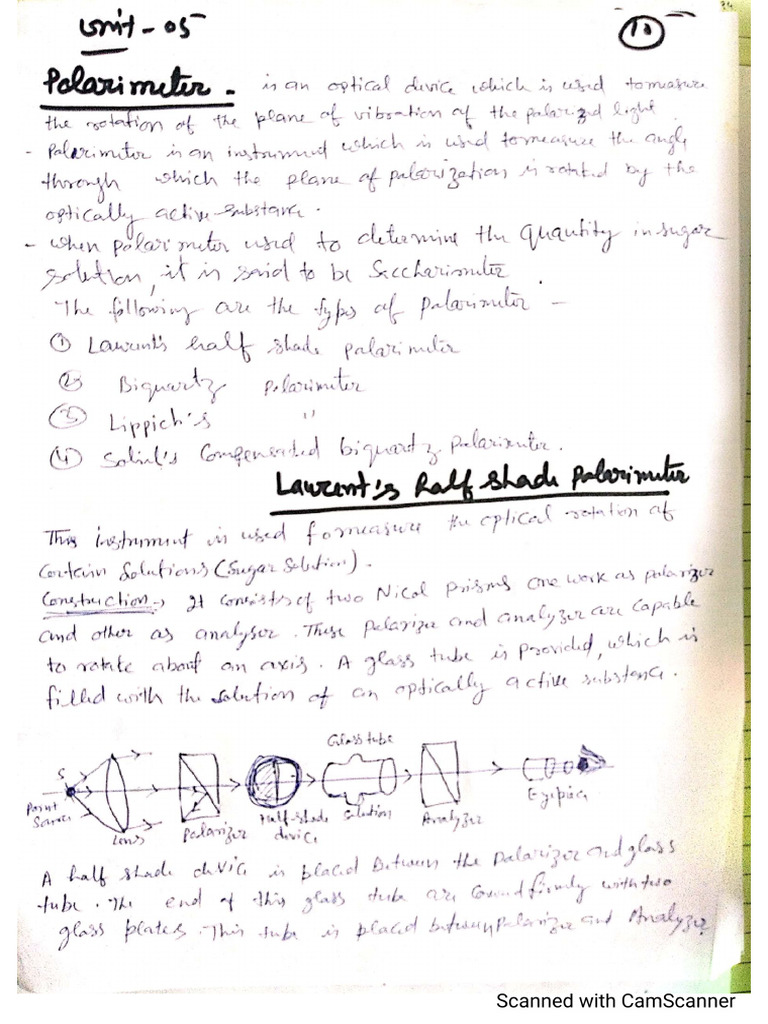 Unit - 05
10
Polarimeter - is an optical device which is used tomeasure
the rotation of the plane of vibration of the polarized light
- Polarimeter is an instrument which is used tomeasure the angle
through which the plane of polarization is rotated by the
optically active substance.
- when polarimeter used to determine the quantity in sugar
solution, it is said to be Saccharimeter.
The following are the types of polarimeter -
① Laurent's half shade polarimeter
② Biquartz polarimeter
③ Lippich's "
④ Compensated biquartz polarimeter.
Laurent's half shade Polarimeter
This instrument is used to measure the optical rotation of
certain Solutions (Sugar Solution).
Construction → It consists of two Nicol prisms one work as polarizer
and other as analyser. These polarizer and analyzer are capable
to rotate about an axis. A glass tube is provided, which is
filled with the solution of an optically active substance.
Glass tube
S
Point
Source
Lens
Polarizer
Half-shade
device
Solution
Analyzer
Eyepiece
A half shade device is placed between the polarizer and glass
tube. The end of this glass tube are firmly with two
glass plates. This tube is placed between Polarizer and Analyzer
Scanned with CamScanner